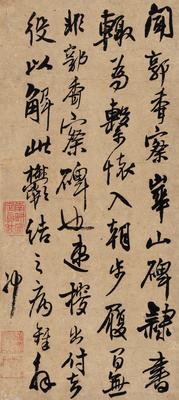 聞郭香察崋山碑隸書
輙為繫懷入朝步履間無
非郭香察碑也速撥出付去
役以解此鬱結之病